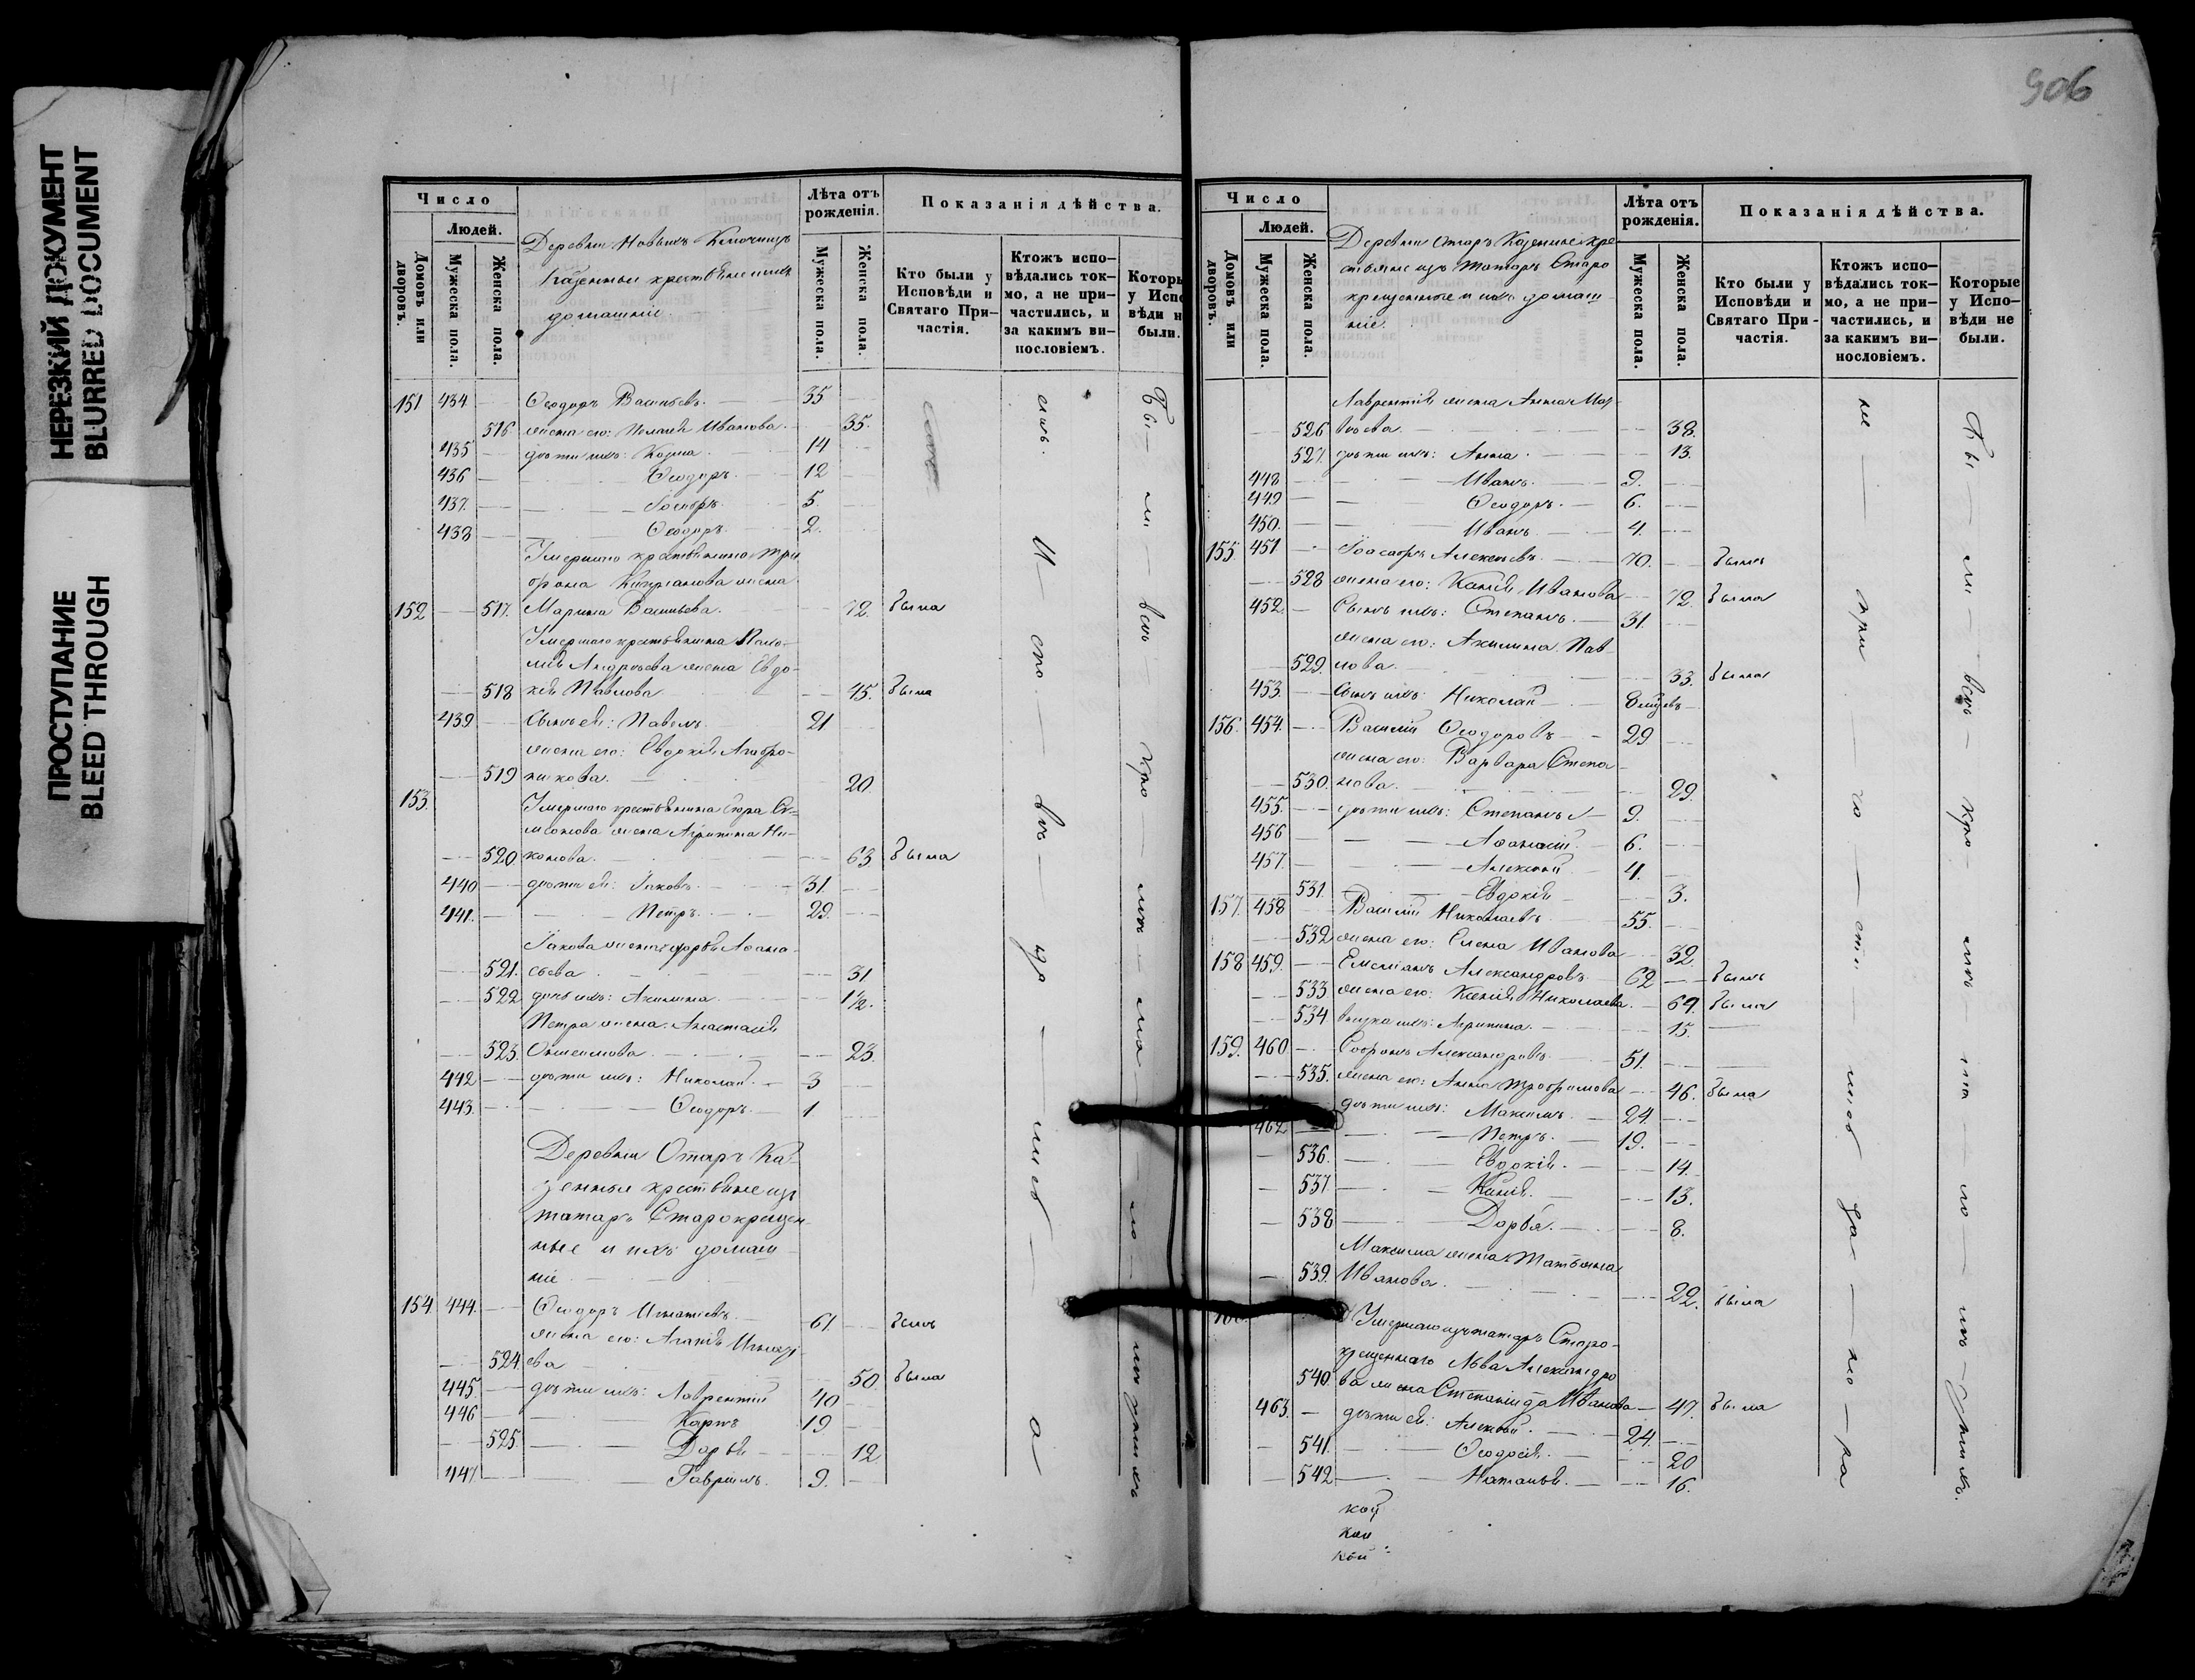 НЕРЕЗКИЙ ДОКУМЕНТ
BLURRED DOCUMENT
ПРОСТУПАНИЕ
BLEED THROUGH
Число
Людей.
Домовъ или дворовъ.
Мужеска пола.
Женска пола.
Деревни Новыхъ Ключищъ
Казенныя крестьяне и ихъ
домашніе.
Лѣта отъ рожденія.
Мужеска пола.
Женска пола.
Показанія дѣйства.
Кто были у Исповѣди и Святаго Причастія.
Ктожъ исповѣдались токмо, а не причастились, и за какимъ винословіемъ.
Которы у Испо вѣди н были.
151 434 Ѳеодоръ Васильевъ. 35
516. жена его: Пелагія Иванова. 35.
435 дѣти ихъ: Козма. 14
436 Ѳеодоръ. 12
437. Іосифъ. 5.
438 Ѳеодоръ. 2.
Умершаго крестьянина Три
фона Кипріанова жена
152 517. Марина Васильева. 72. была
Умершаго крестьянина
Андреева жена Евдо-
518 кія Павлова 45. была
439. Сынъ ея: Павелъ. 21
жена его: Евдокія Агафо-
519 никова. 20.
153. Умершаго крестьянина Егора Си-
меонова жена Агрипина Ни-
520. конова. 63 была
440 дѣти ея: Іаковъ. 31.
441. Петръ. 29.
Іакова жена: Дарья Аѳана-
521. сьева 31.
522 дочь ихъ: Акилина. 1½.
Петра жена: Анастасія
523. Онисимова. 23.
442 дѣти ихъ: Николай. 3
443. Ѳеодоръ. 1.
Деревни Отаръ Ка-
зенныя крестьяне изъ
татаръ Старокрещен-
ные и ихъ домаш-
ніе
154. 444. Ѳеодоръ Игнатіевъ. 61. былъ
жена его: Агапія Игнатi-
524. ева 50. была
445. дѣти ихъ: Лаврентій 40
446 Карпъ 19
525. Дарья 12
447. Гавріилъ. 9.
906
Число
Людей.
Домовъ или дворовъ.
Мужеска пола.
Женска пола.
Деревни Отаръ Казенные кре
стьяне изъ татаръ Старо
крещенные и ихъ домаш-
ніе.
Лѣта отъ рожденія.
Мужеска пола.
Женска пола.
Показанія дѣйства.
Кто были у Исповѣди и Святаго Причастія.
Ктожъ исповѣдались токмо, а не причастились, и за какимъ винословіемъ.
Которые у Исповѣди не были.
Лаврентія жена Анна Мат-
526 вѣева. 38.
527. дѣти ихъ: Анна. 13.
448 Иванъ. 9.
449 Ѳеодоръ. 6.
450. Иванъ. 4.
155. 451 Іоасафъ Алексѣевъ. 70. былъ
528 жена его: Ксенія Иванова 72. была
452 Сынъ ихъ: Степанъ. 31.
жена его: Акилина Пав-
529. лова. 33. была
453. сынъ ихъ: Николай
156. 454. Василій Ѳеодоровъ 29
жена его: Варвара Степа-
530. нова. 29.
455. дѣти ихъ: Степанъ 9.
456 Аѳанасій. 6.
457. Алексѣй. 4.
531. Евдокія 3.
157. 458 Василій Николаевъ 55.
532 жена его: Елена Иванова 32.
158 459. Емеліанъ Александровъ 62 былъ
533 жена его: Ксенія Николаева. 69. была
534 внука ихъ: Агрипина. 15.
159. 460 Софронъ Александровъ 51.
535. жена его: Анна Трофимова 46. была
дѣти ихъ: Максимъ. 24.
462 Петръ. 19.
536. Евдокія. 14.
537 Ксенія. 13.
538 Дарья. 8.
Максима жена: Татьяна
539. Иванова. 22. была
Умершаго изъ татаръ Старо-
крещеннаго Льва Александро
540. ва жена Степанида Иванова 47. была
463. дѣти ея: Алексѣй. 24.
541. Ѳеодосія. 20
542 Наталья. 16.
кой
кои
кой